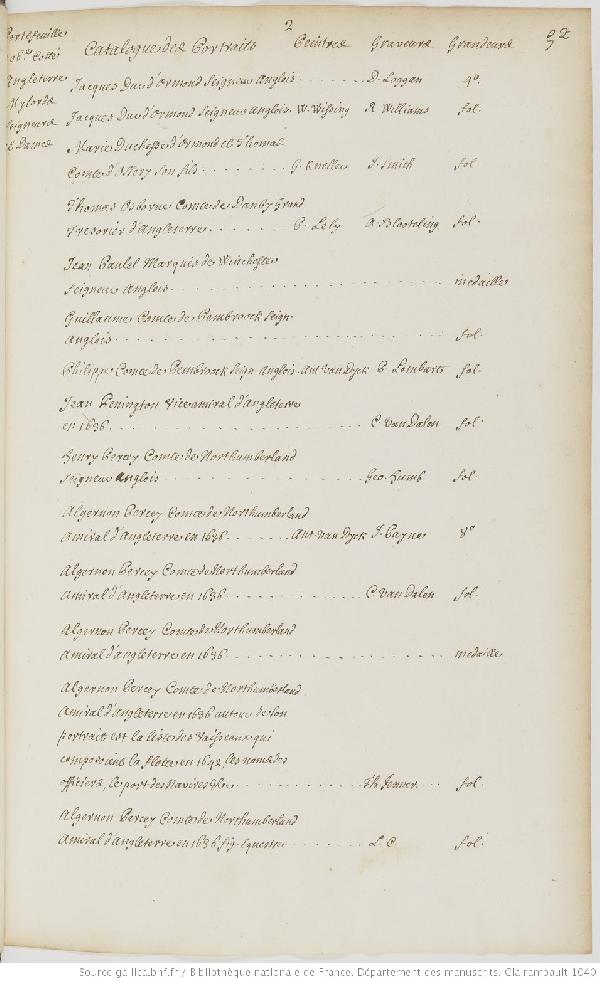 2
Portefeuille
Cotté
Angleterre
Mylords
Seigneurs
et Dames
Catalogue des Portraits Peintres Graveurs Grandeurs 92
Jacques Duc d'Ormond Seigneur Anglois D. Loggan 4°.
Jacques Duc d'Ormond Seigneur Anglois W. Wissing R. Williams fol.
Marie Duchesse d'Ormond et Thomas
Comte d'Ossery son fils G. Kneller J. Smith fol.
Thomas Osborne Comte de Danby Grand
Tresorier d'Angleterre P. Lely A Blooteling fol.
Jean Paulet Marquis de Winchester
Seigneur Anglois medaille
Guillaume Comte de Pembroock Seign.
Anglois fol.
Philippe Comte de Pembroock Seign. Anglois Ant. Van Dyck P. Lombarts fol.
Jean Penington Viceamiral d'Angleterre
en 1636 C. Van Dalen fol.
Henry Percey Comte de Northumberland
Seigneur Anglois Geo. Humb fol.
Algernon Percey Comte de Northumberland
Amiral d'Angleterre en 1636 Ant. Van Dyck J. Payne 8°
Algernon Percey Comte de Northumberland
Amiral d'Angleterre en 1636 C Van Dalen fol.
Algernon Percey Comte de Northumberland
Amiral d'Angleterre en 1636 medaille
Algernon Percey Comte de Northumberland
Amiral d'Angleterre en 1636 autour de son
portrait est la liste des Vaisseaux qui
composoient la flotte en 1642 les noms des
officiers, le port des Navires &c. Th. Jenner fol.
Algernon Percey Comte de Northumberland
Amiral d'Angleterre en 1636 fig. equestre L. C. fol.
Source gallica.bnf.fr / Bibliothèque nationale de France. Département des manuscrits. Clairambault 1040